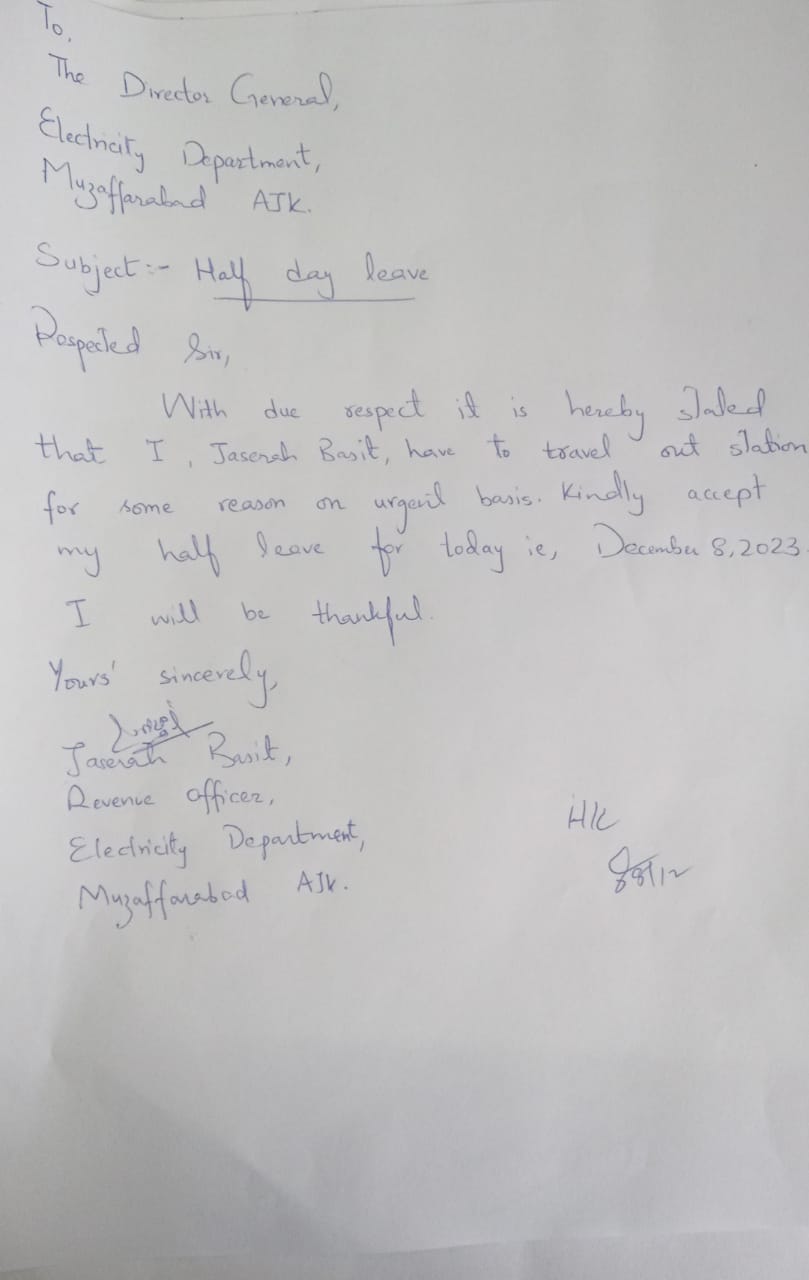 To,
The Director General,
Electricity Department,
Muzaffarabad AJK.
Subject:- Half day leave
Respected Sir,
With due respect it is hereby stated
that I, Jaserah Basit, have to travel out station
for some reason on urgent basis. Kindly accept
my half leave for today ie, December 8, 2023.
I will be thankful.
Yours' sincerely,
Jaserah Basit,
Revenue Officer,
Electricity Department,
Muzaffarabad AJK.